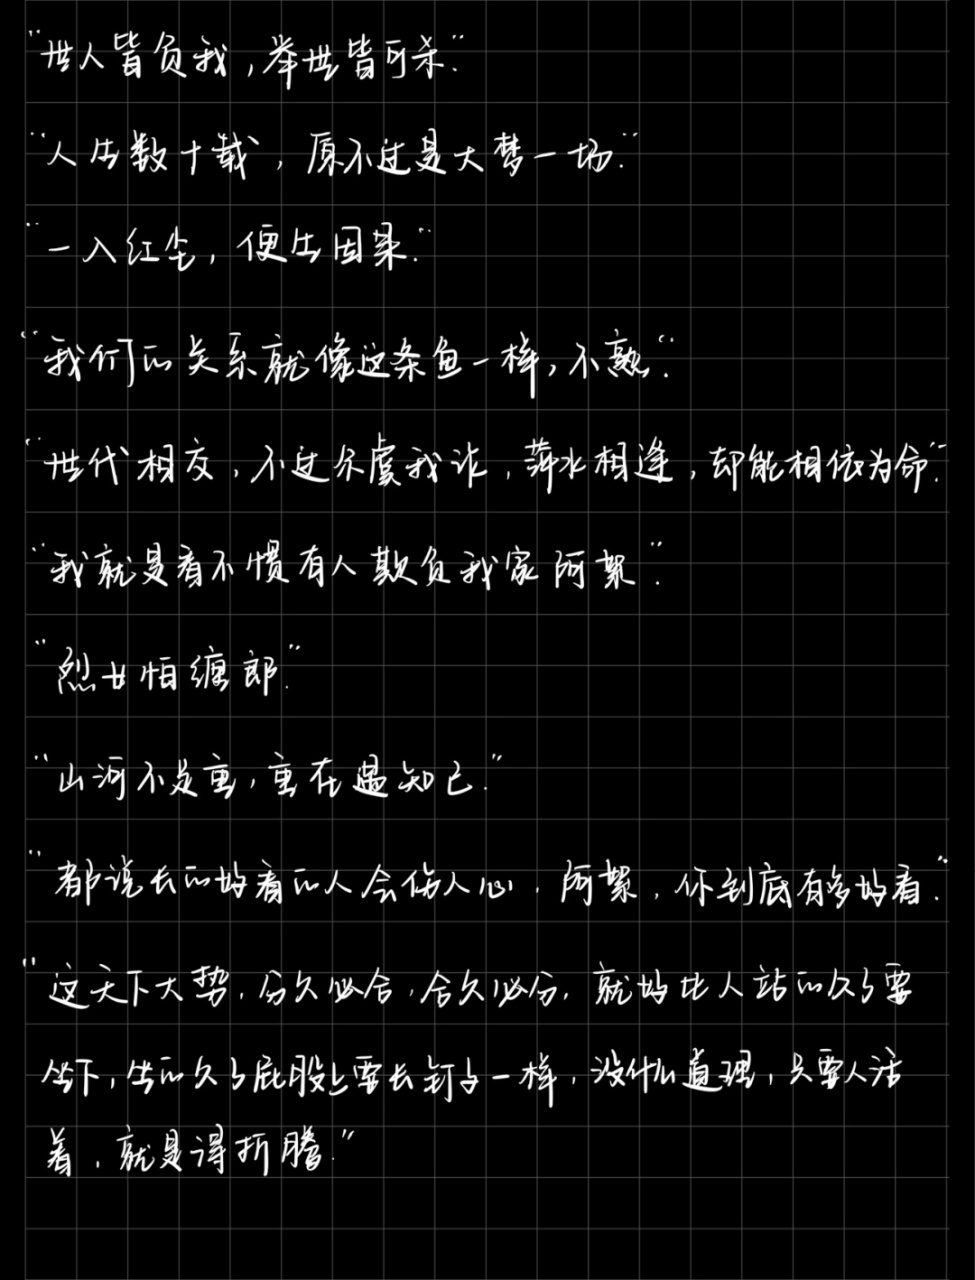 "世人皆负我,举世皆可杀."
"人生数十载,原不过是大梦一场."
"一入红尘,便生因果."
"我们的关系就像这条鱼一样,不熟."
"世代相交,不过尔虞我诈,萍水相逢,却能相依为命."
"我就是看不惯有人欺负我家阿絮".
"烈女怕缠郎".
"山河不足重,重在遇知己."
"都说长的好看的人会伤人心,阿絮,你到底有多好看."
"这天下大势,分久必合,合久必分,就好比人站的久了要
坐下,坐的久了屁股上要长钉子一样,没什么道理,只要人活
着,就是得折腾."